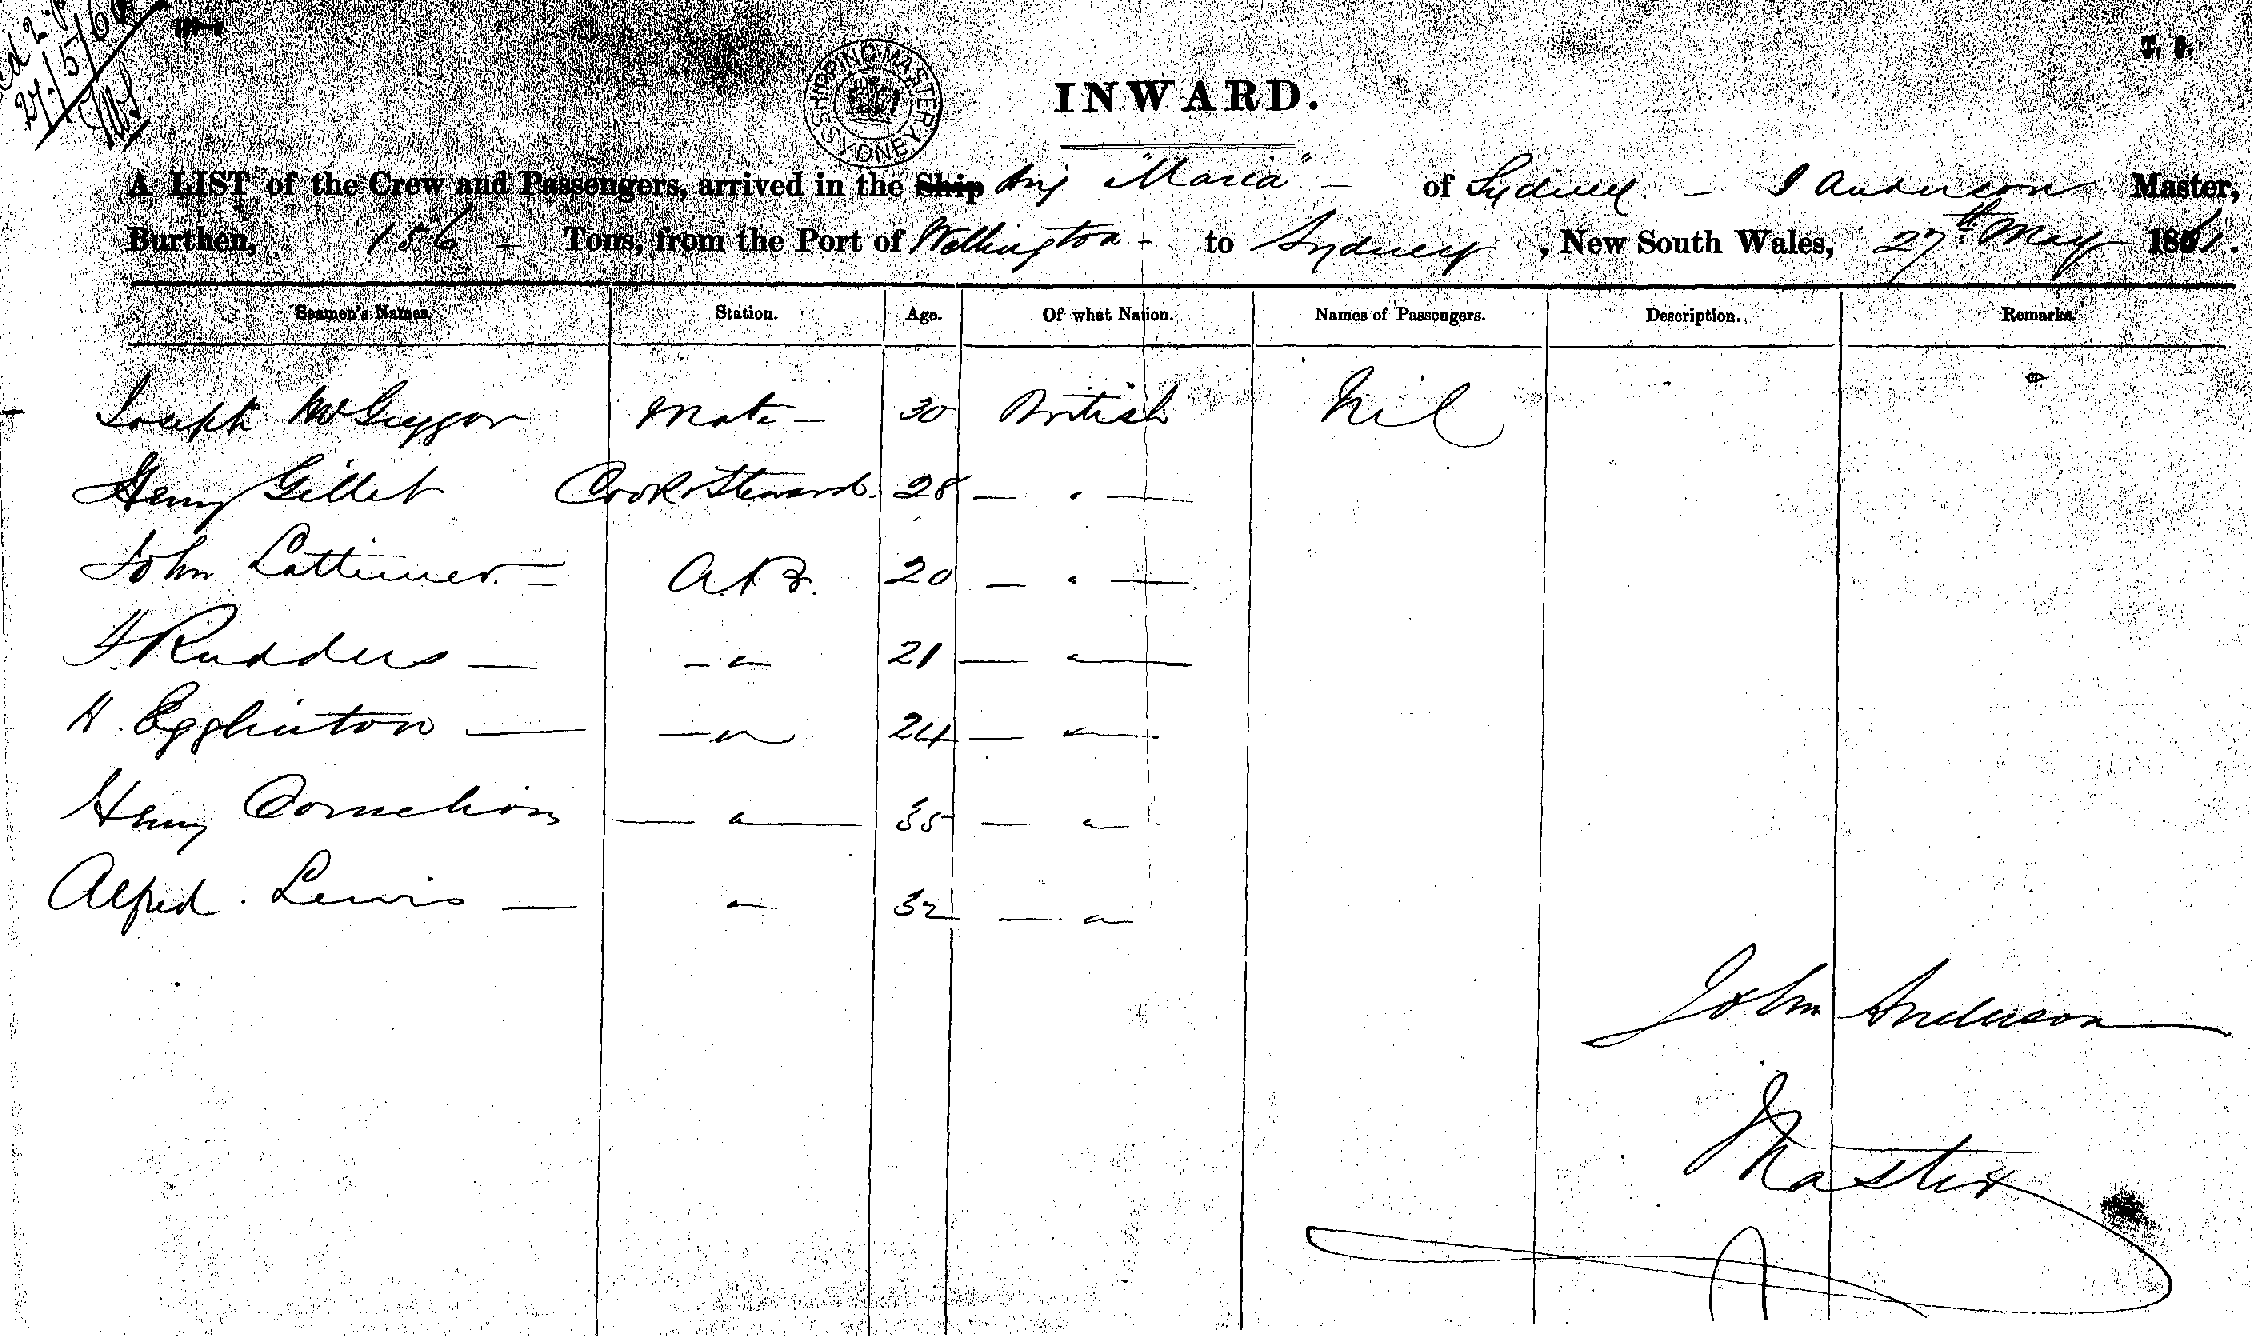 27/5/61
SHIPPING MASTER SYDNEY
INWARD.
A LIST of the Crew and Passengers, arrived in the Ship Brig "Maria" - of Sydney - J Anderson Master,
Burthen, 156 - Tons, from the Port of Wellington - to Sydney, New South Wales, 27th May 1861.
Seamen's Names. Station. Age. Of what Nation. Names of Passengers. Description. Remarks.
Joseph McGreggor Mate - 30 British Nil
Henry Gillet Cook & Steward 28 — " —
John Lattimer - A.B. 20 — " —
J Rudders - - " 21 — " —
H. Egglinton — - " 24 — " —
Henry Cornelious — " — 35 — " —
Alfred Lewis — " 32 — "
John Anderson
Master